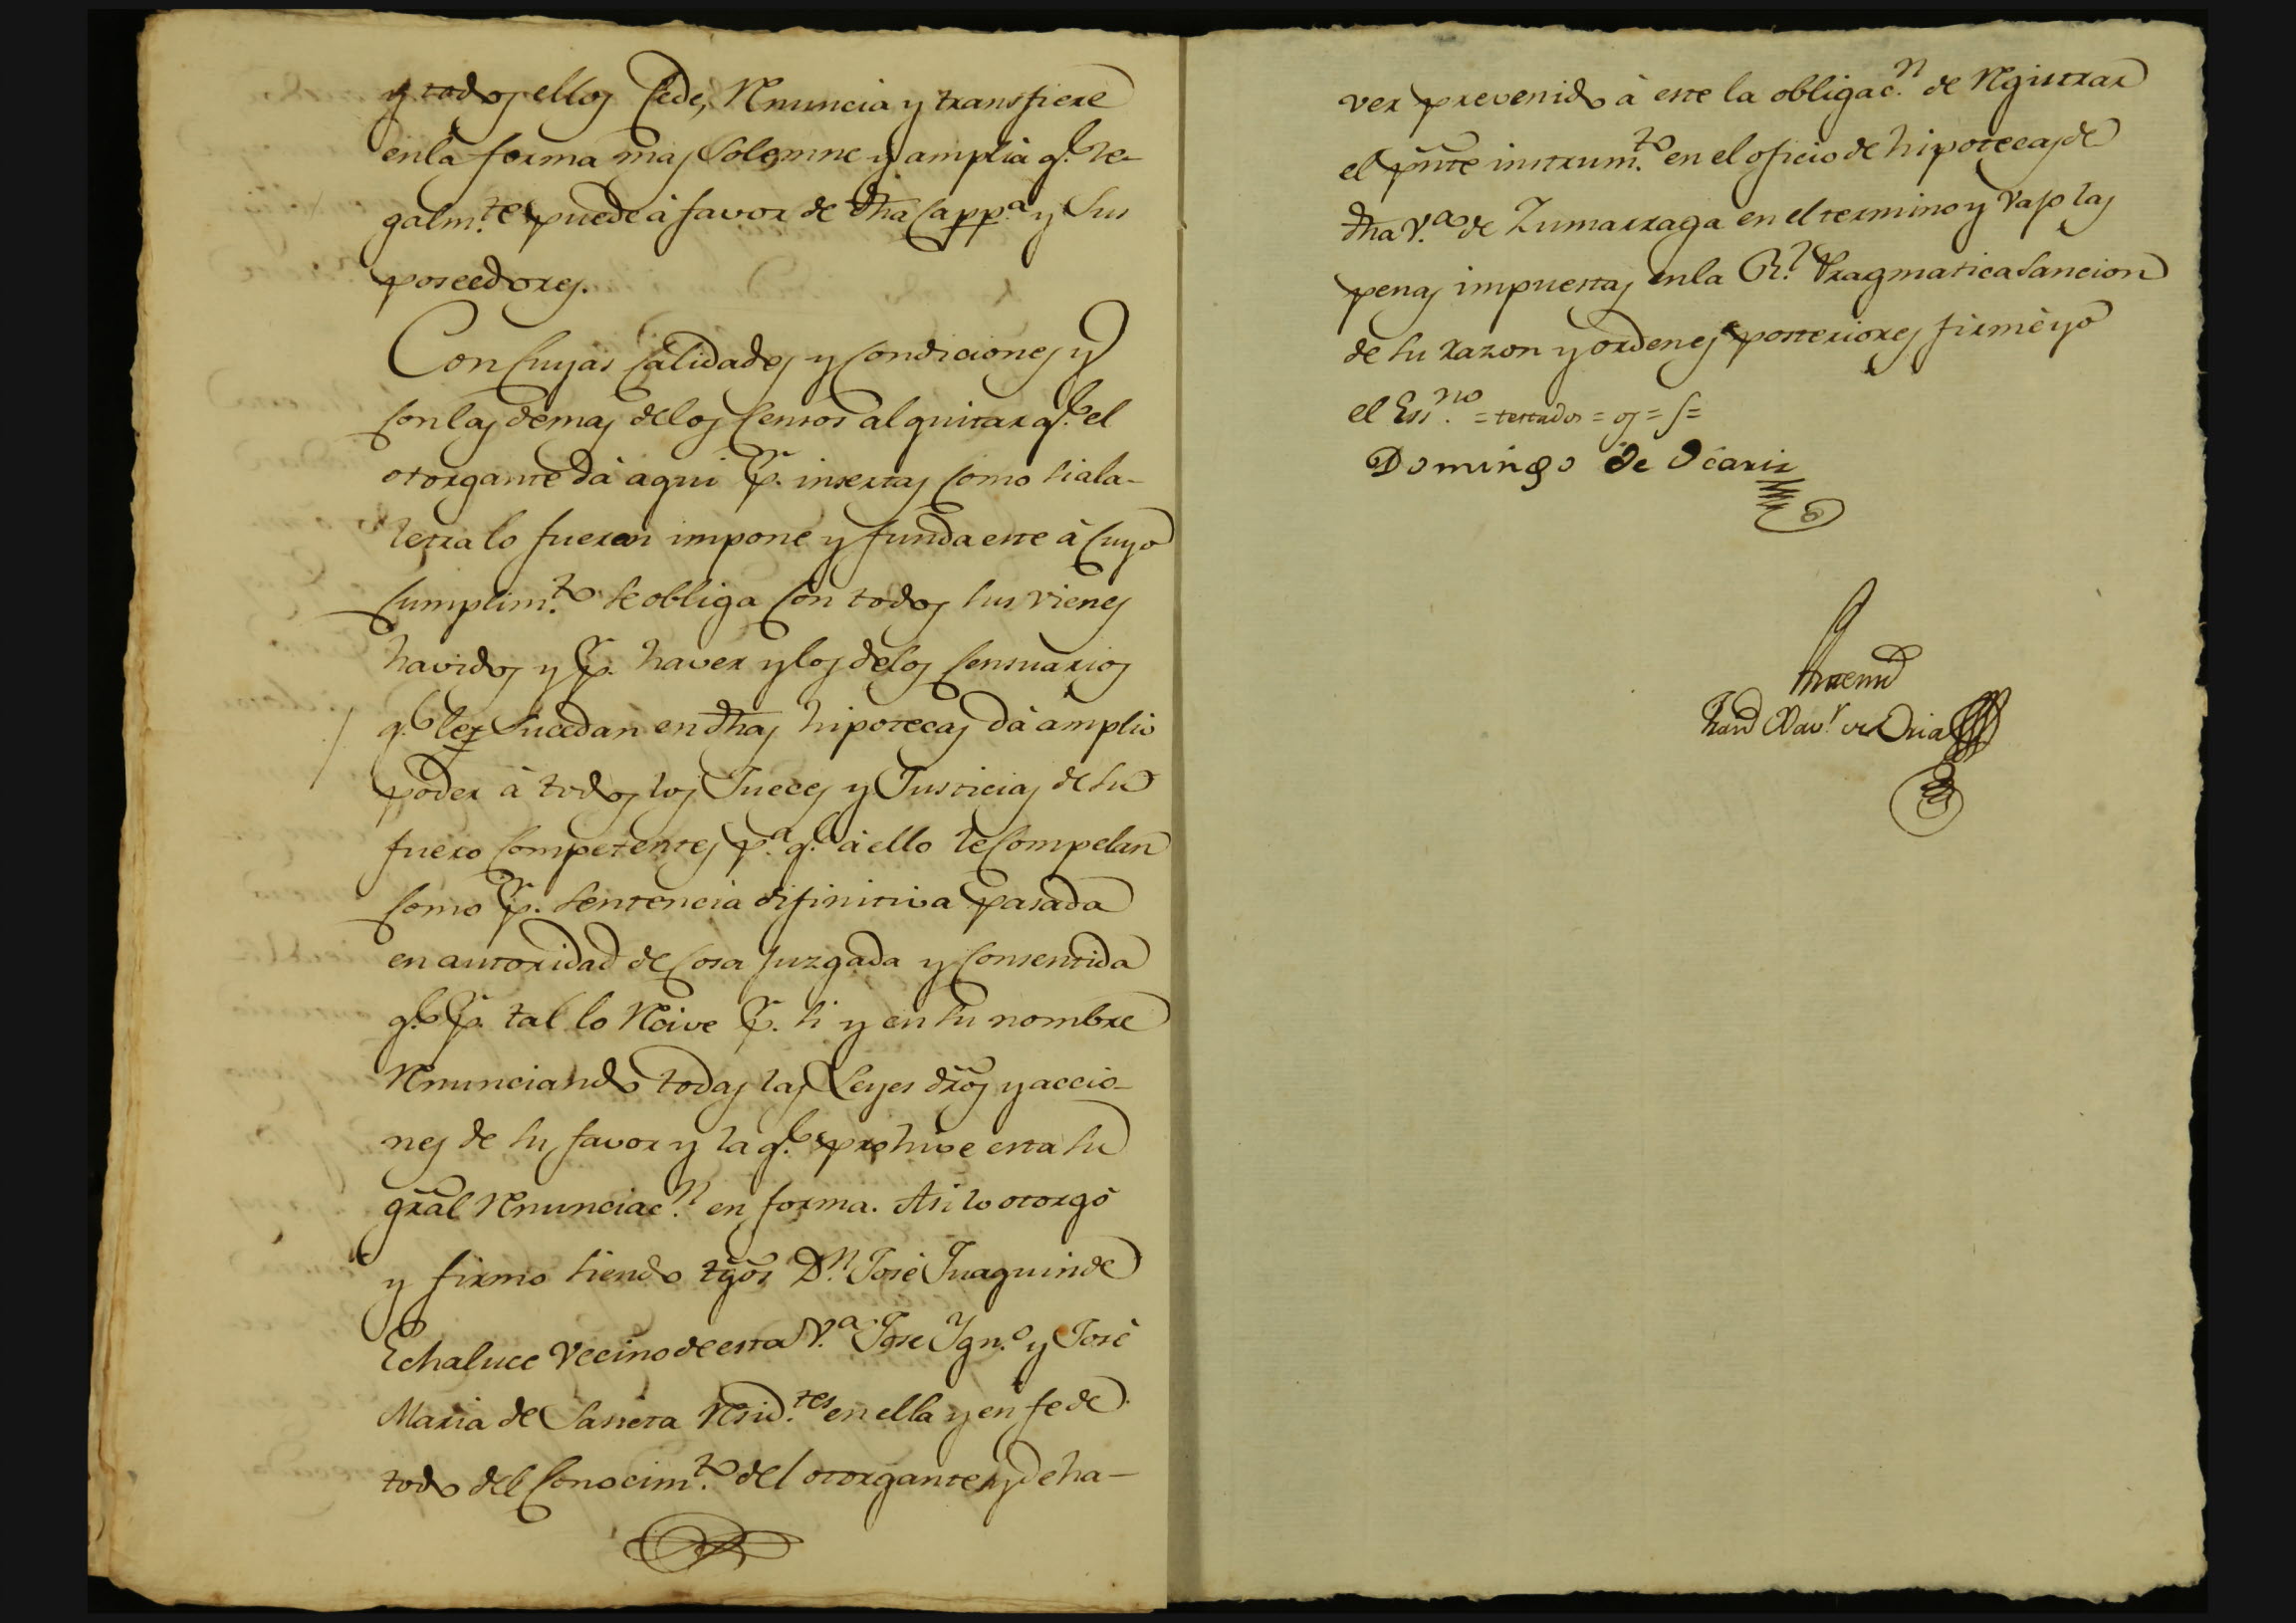 y todos ellos Cede, Renuncia y transfiere
en la forma mas Solemne y amplia q.e le-
galm.te puede à favor de dha Capp.a y sus
poseedores.
Con Cuyas Calidades y Condiciones y
Con las demas de los Censos al quitar q.e el
otorgante dà aqui p.r insertas Como si a la-
letra lo fueran impone y funda este à Cuyo
Cumplim.to se obliga Con todos sus vienes
havidos y p.r haver y los de los Censuarios
q.e les Sucedan en dhas hipotecas dà amplio
poder à todos los Jueces y Justicias de su
fuero Competentes p.a q.e à ello le Compelan
Como p.r Sentencia difinitiva pasada
en autoridad de Cosa Juzgada y Consentida
q.e p.r tal lo Recive p.r si y en su nombre
Renunciando todas las Leyes dros y accio-
nes de su favor y la q.e prohive esta su
gral Renunciac.n en forma. Asi lo otorgò
y firmo siendo tgos D.n Josè Juaquin de
Echaluce Vecino de esta V.a Jose Ygn.o y Josè
Maria de Sasieta Resid.tes en ella y en fe de
todo del Conocim.to del otorgante y de ha-
ver prevenido à este la obligac.n de Registrar
el pnte instrum.to en el oficio de hipotecas de
dha V.a de Zumarraga en el termino y vajo las
penas impuestas en la R.l Pragmatica Sancion
de su razon y ordenes posteriores firmè yo
el Ess.no = testados = os = s =
Domingo de Ocariz
Antemi
Xav.r de Oria